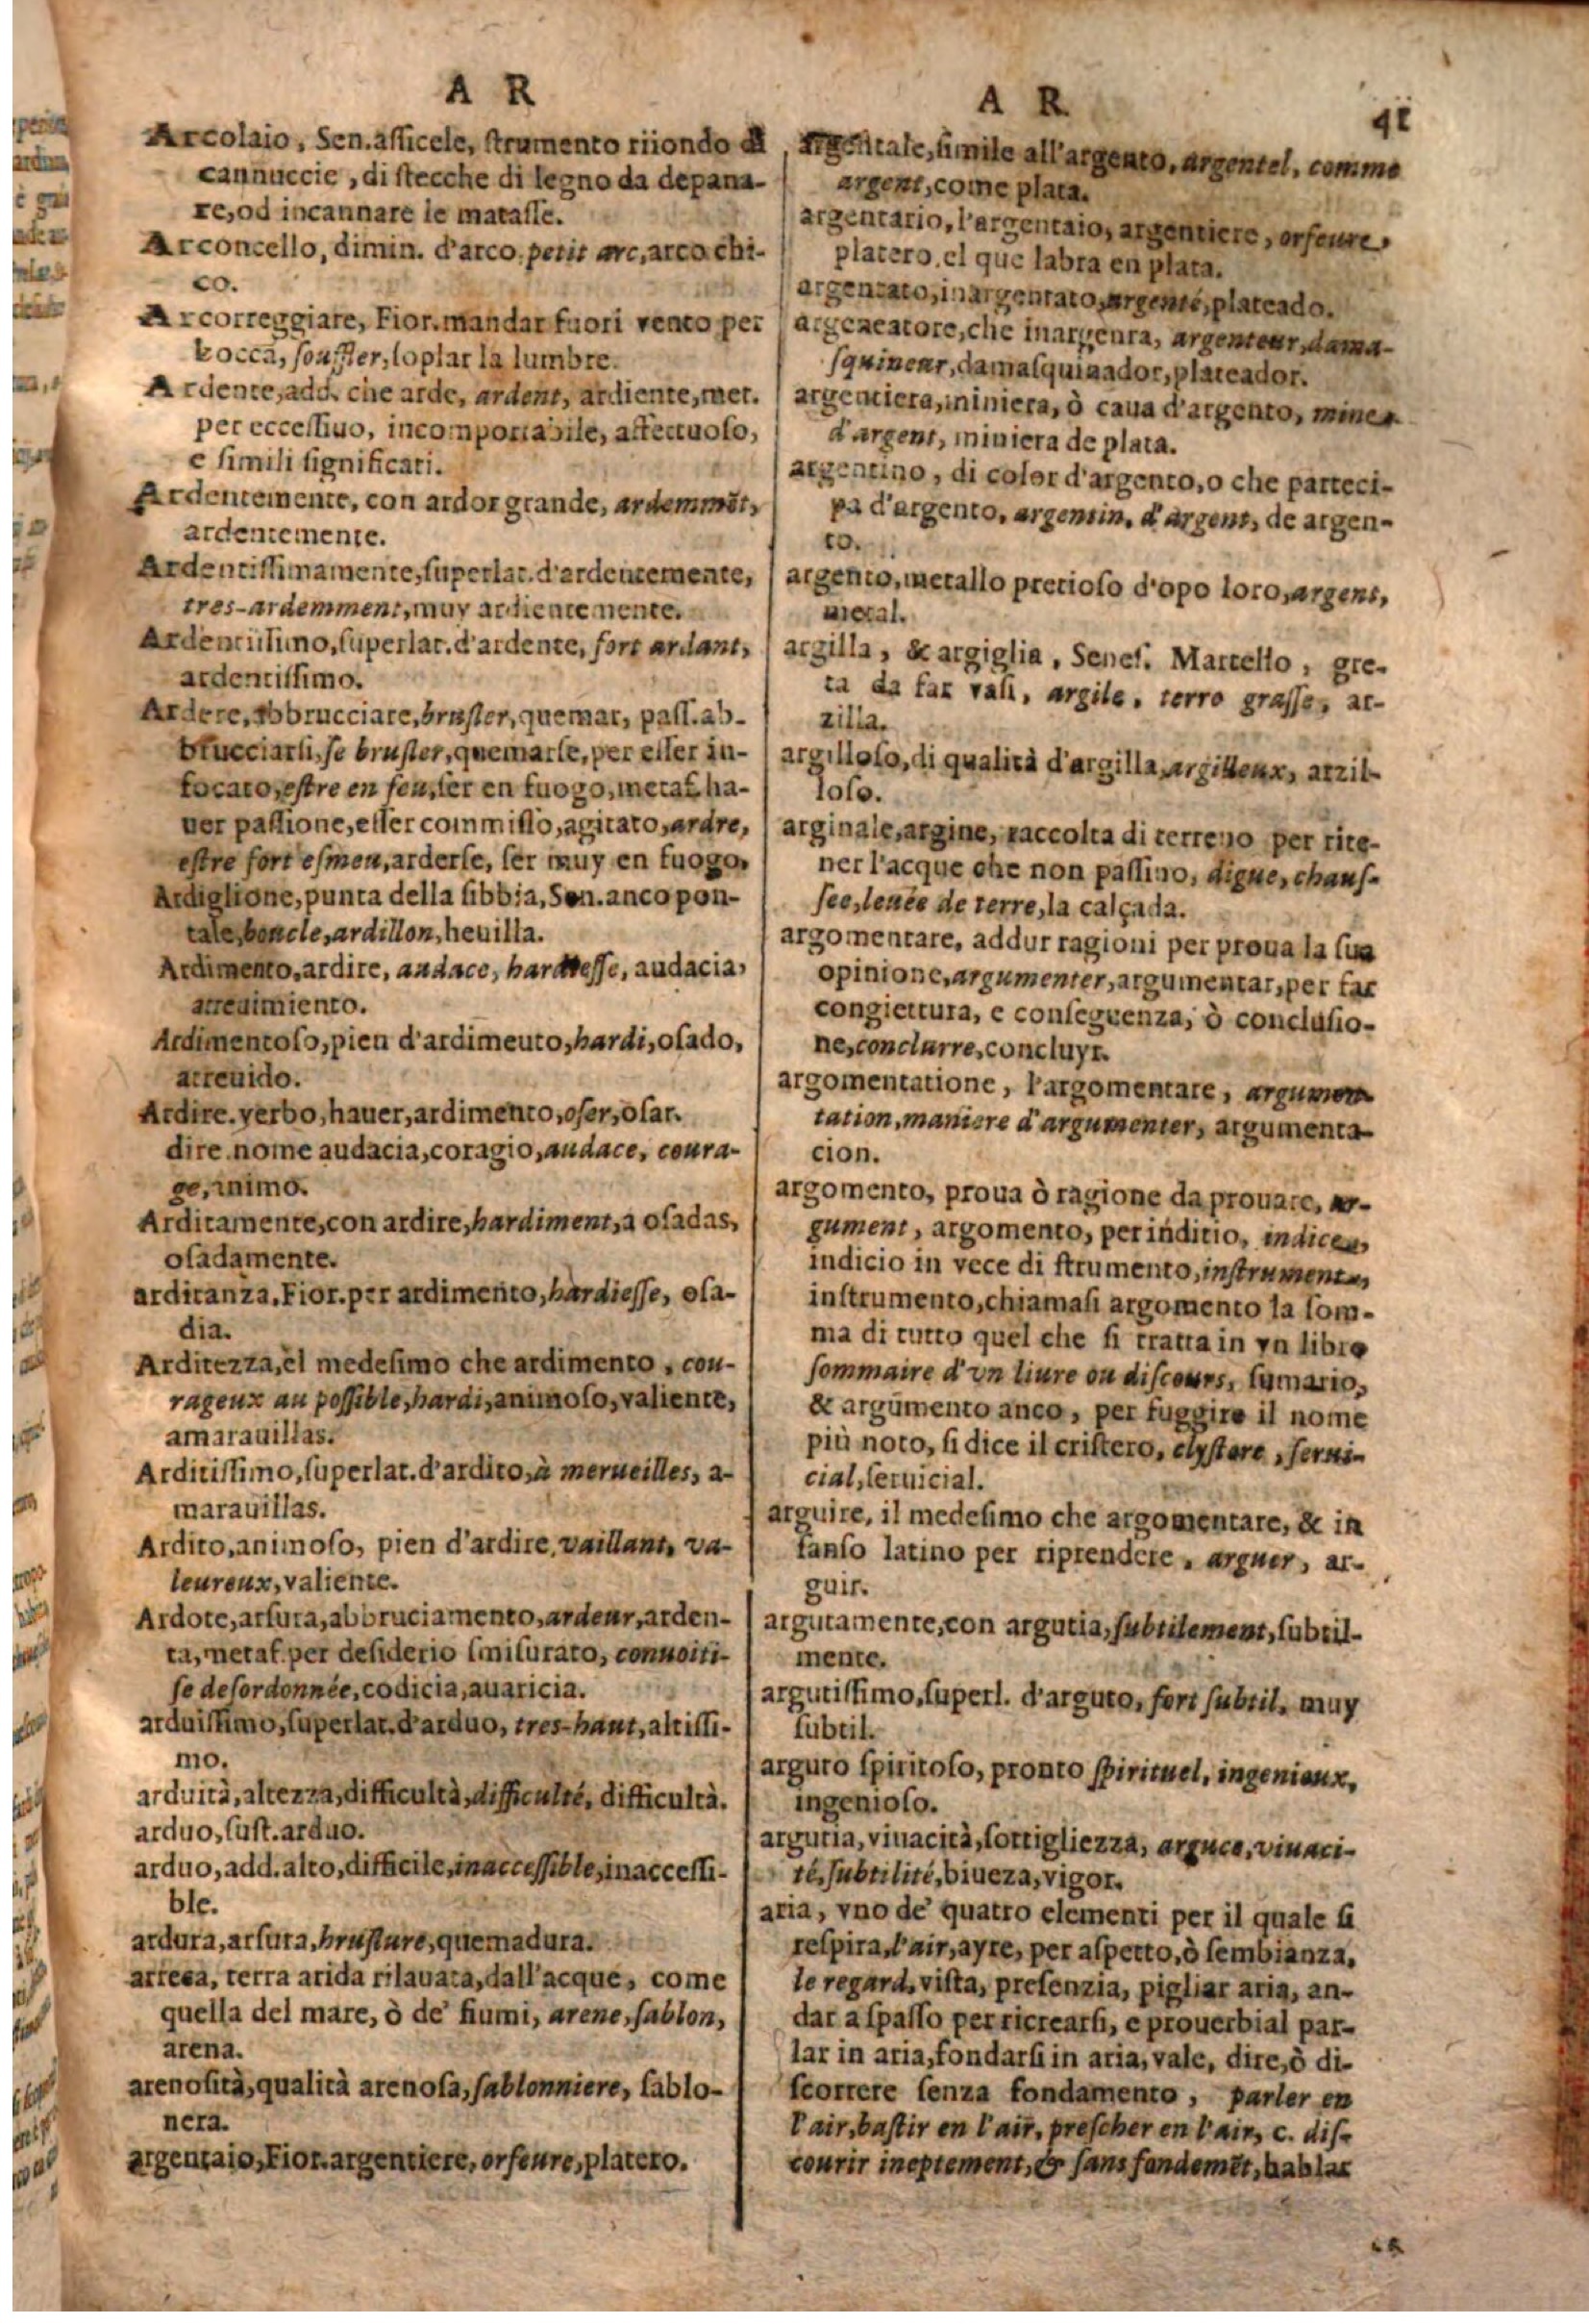 A R
Arcolaio, Sen.aſſicele, ſtrumento riiondo di
cannuccie, di ſtecche di legno da depana-
re,od incannare le mataſſe.
Arconcello, dimin. d'arco, petit arc, arco chi-
co.
Arcorreggiare, Fior.mandar fuori vento per
bocca, ſouffler, ſoplar la lumbre.
Ardente,add. che arde, ardent, ardiente,met.
per ecceſſiuo, incomportabile, affettuoſo,
e ſimili ſignificati.
Ardentemente, con ardor grande, ardemmẽt,
ardentemente.
Ardentiſſimamente,ſuperlat.d'ardentemente,
tres-ardemment,muy ardientemente.
Ardentiſſimo,ſuperlat.d'ardente, fort ardant,
ardentiſſimo.
Ardere, abbrucciare,bruſler,quemar, paſſ.ab-
brucciarſi,ſe bruſler,quemarſe,per eſſer in-
focato,eſtre en feu,ſer en fuogo,metaf.ha-
uer paſſione,eſſer commiſſo,agitato,ardre,
eſtre fort eſmeu,arderſe, ſer muy en fuogo,
Ardiglione,punta della fibbia, Sen.anco pon-
tale,boucle,ardillon,heuilla.
Ardimento,ardire, audace, hardieſſe, audacia,
atreuimiento.
Ardimentoſo,pien d'ardimeuto,hardi,oſado,
atreuido.
Ardire.verbo,hauer,ardimento,oſer,oſar.
dire.nome audacia,coragio,audace, coura-
ge,inimo.
Arditamente,con ardire,hardiment,a oſadas,
oſadamente.
arditanza,Fior.per ardimento,hardieſſe, oſa-
dia.
Arditezza,el medeſimo che ardimento, cou-
rageux au poſſible,hardi,animoſo,valiente,
amarauillas.
Arditiſſimo,ſuperlat.d'ardito,à merueilles, a-
marauillas.
Ardito,animoſo, pien d'ardire,vaillant, va-
leureux,valiente.
Ardote,arſura,abbruciamento,ardeur,arden-
ta,metaf.per deſiderio ſmiſurato, conuoiti-
ſe deſordonnée,codicia,auaricia.
arduiſſimo,ſuperlat.d'arduo, tres-haut,altiſſi-
mo.
arduità,altezza,difficultà,difficulté, difficultà.
arduo,ſuſt.arduo.
arduo,add.alto,difficile,inacceſſible,inacceſſi-
ble.
ardura,arſura,bruſlure,quemadura.
arrera, terra arida rilauata,dall'acque, come
quella del mare, ò de' fiumi, arene,ſablon,
arena.
arenoſità,qualità arenoſa,ſablonniere, ſablo-
nera.
argentaio,Fior.argentiere,orfeure,platero.
A R
41
argentale,ſimile all'argento, argentel, comme
argent,come plata.
argentario,l'argentaio, argentiere, orfeure,
platero,el que labra en plata.
argentato,inargentato,argenté,plateado.
argentatore,che inargenta, argenteur,dama-
ſquineur,damaſquinador,plateador.
argentiera,miniera, ò caua d'argento, mines
d'argent, miniera de plata.
argentino, di color d'argento,o che parteci-
pa d'argento, argentin, d'argent, de argen-
to.
argento,metallo pretioſo d'opo loro,argent,
metal.
argilla, & argiglia, Seneſ. Martello, gre-
ta da far vaſi, argile, terro graſſe, ar-
zilla.
argilloſo,di qualità d'argilla,argilleux, arzil-
loſo.
arginale,argine, raccolta di terreno per rite-
ner l'acque che non paſſino, digue, chauſ-
ſee,leuée de terre,la calçada.
argomentare, addur ragioni per proua la ſua
opinione,argumenter,argumentar,per far
congiettura, e conſeguenza, ò concluſio-
ne,conclurre,concluyr.
argomentatione, l'argomentare, argumen-
tation,maniere d'argumenter, argumenta-
cion.
argomento, proua ò ragione da prouare, ar-
gument, argomento, per inditio, indices,
indicio in vece di ſtrumento,inſtruments,
inſtrumento,chiamaſi argomento la ſom-
ma di tutto quel che ſi tratta in vn libro
ſommaire d'vn liure ou diſcours, ſumario,
& argumento anco, per fuggire il nome
più noto, ſi dice il criſtero, clyſtere, ſerui-
cial,ſeruicial.
arguire, il medeſimo che argomentare, & in
ſanſo latino per riprendere, arguer, ar-
guir.
argutamente,con argutia,ſubtilement,ſubtil-
mente.
argutiſſimo,ſuperl. d'arguto, fort ſubtil, muy
ſubtil.
arguto ſpiritoſo, pronto ſpirituel, ingenieux,
ingenioſo.
argutia, viuacità,ſottigliezza, arguce,viuaci-
té,ſubtilité,biueza,vigor.
aria, vno de' quatro elementi per il quale ſi
reſpira,l'air,ayre, per aſpetto,ò ſembianza,
le regard,viſta, preſenzia, pigliar aria, an-
dar a ſpaſſo per ricrearſi, e prouerbial par-
lar in aria,fondarſi in aria, vale, dire,ò di-
ſcorrere ſenza fondamento, parler en
l'air,baſtir en l'air, preſcher en l'air, c. diſ-
courir ineptement,& ſans fondemẽt,hablar